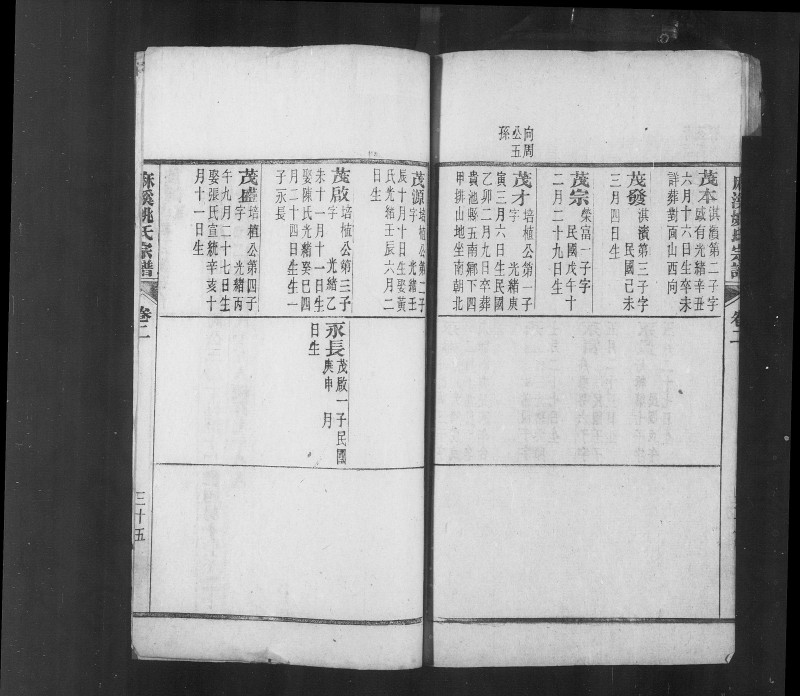 向周
公玉
孫
茂本淇縝第二子字
盛有光緒辛丑
六月十六日生卒未
詳葬對面山西向
茂發淇濱第三子字
民國己未
三月四日生
茂宗榮富一子字
民國戊午十
二月二十九日生
茂才培植公第一子
字 光緒庚
寅三月六日生民國
乙卯二月九日卒葬
貴池縣五南鄉下四
甲排山地坐南朝北
茂源培植公第二子
字 光緒壬
辰十月十日生娶黃
氏光緒壬辰六月二
日生
茂啟培植公第三子
字 光緒乙
未十一月十一日生
娶陳氏光緒癸巳四
月二十四日生生一
子永長
茂盛培植公第四子
字 光緒丙
午九月二十七日生
娶張氏宣統辛亥十
月十一日生
永長茂啟一子民國
庚申 月
日生
麻溪姚氏宗譜
卷二
三十五
麻溪姚氏宗譜
卷二